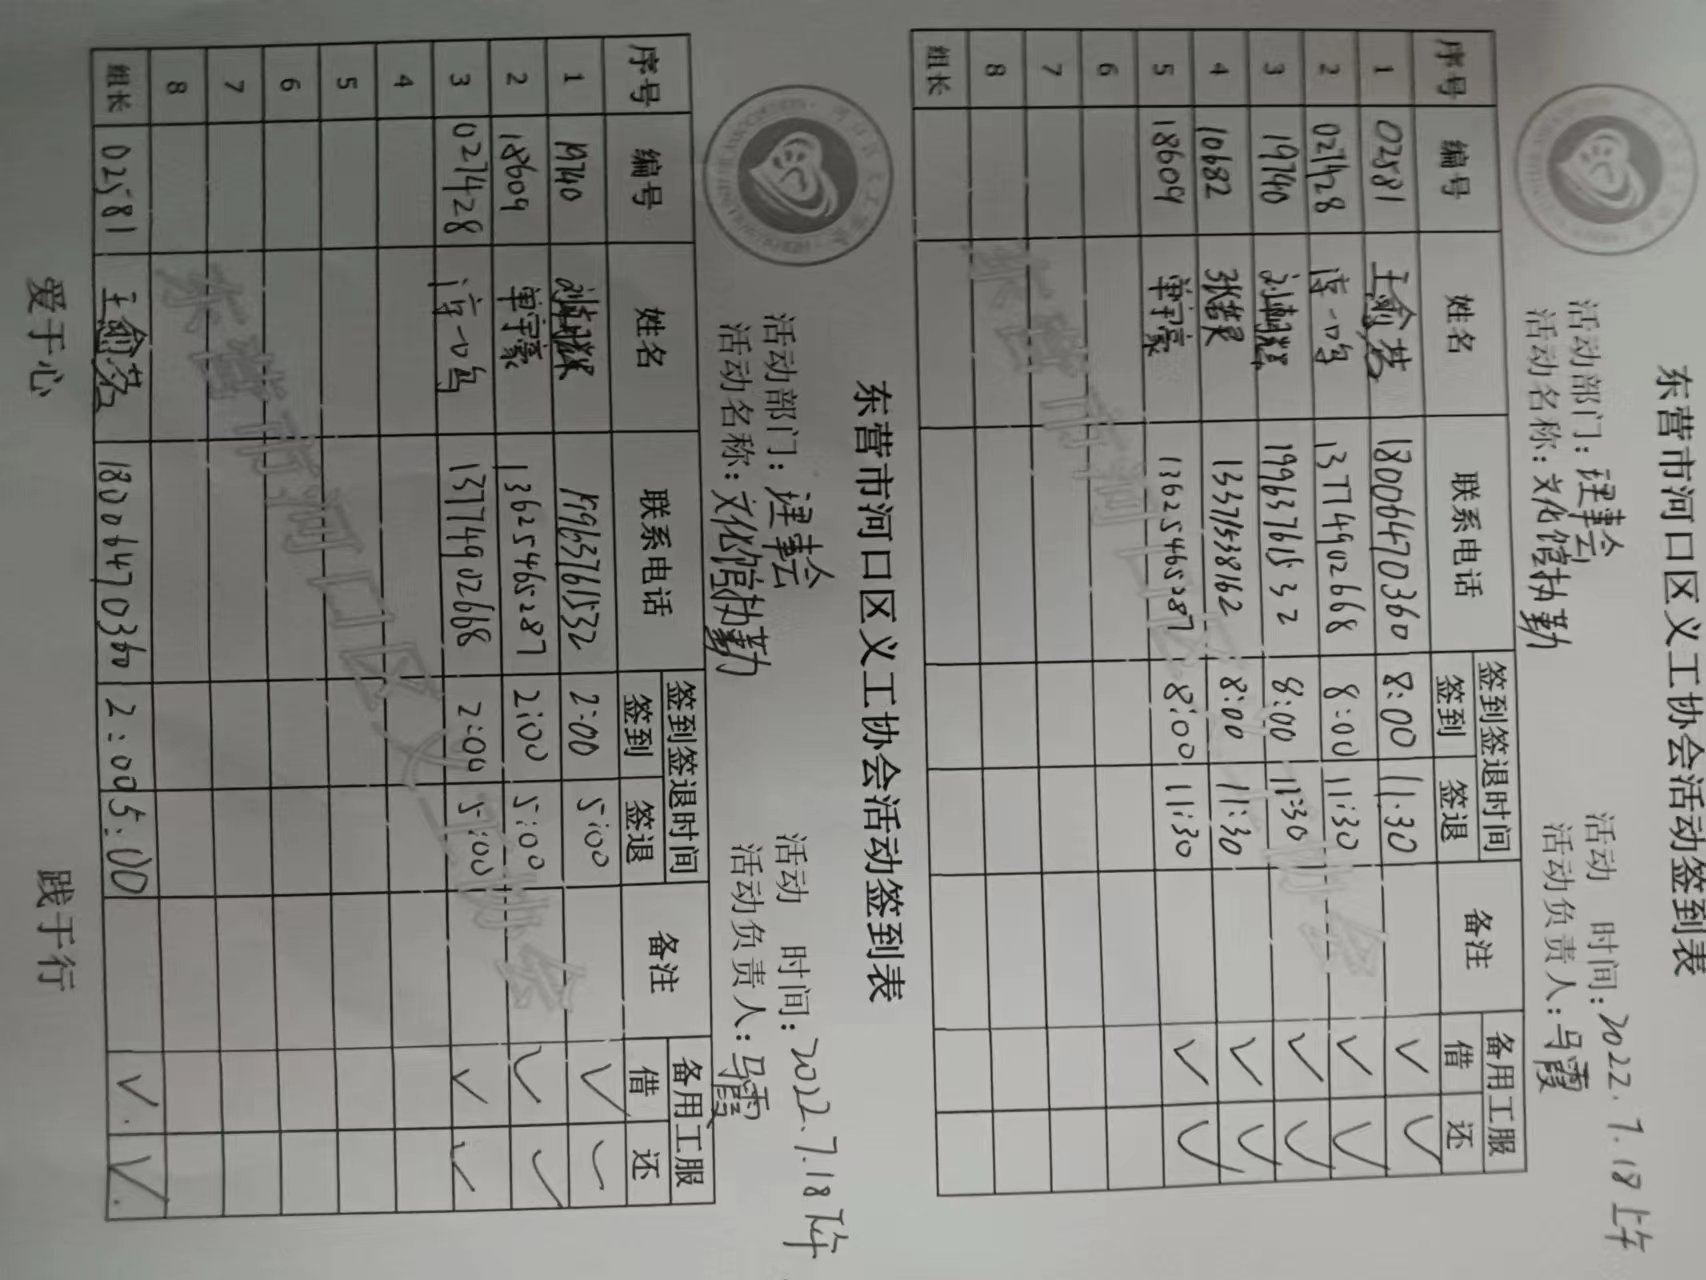 东营市河口区义工协会活动签到表
活动部门：理事会 活动 时间：2022.7.18 上午
活动名称：文化馆执勤 活动负责人：马霞
序号 编号 姓名 联系电话 签到签退时间 备注 备用工服
签到 签退 借 还
1 02581 18006470360 8:00 11:30 ✓ ✓
2 0271428 13774902668 8:00 11:30 ✓ ✓
3 19740 19963761532 8:00 11:30 ✓ ✓
4 10682 13371538162 8:00 11:30 ✓ ✓
5 18609 单宇豪 13625465287 8:00 11:30 ✓ ✓
6
7
8
组长
东营市河口区义工协会
东营市河口区义工协会活动签到表
活动部门：理事会 活动 时间：2022.7.18 下午
活动名称：文化馆执勤 活动负责人：马霞
序号 编号 姓名 联系电话 签到签退时间 备注 备用工服
签到 签退 借 还
1 19740 19963761532 2:00 5:00 ✓ ✓
2 18609 单宇豪 13625465287 2:00 5:00 ✓ ✓
3 0271428 13774902668 2:00 5:00 ✓ ✓
4
5
6
7
8
组长 02581 18006470360 2:00 5:00 ✓ ✓
东营市河口区义工协会
爱于心 践于行